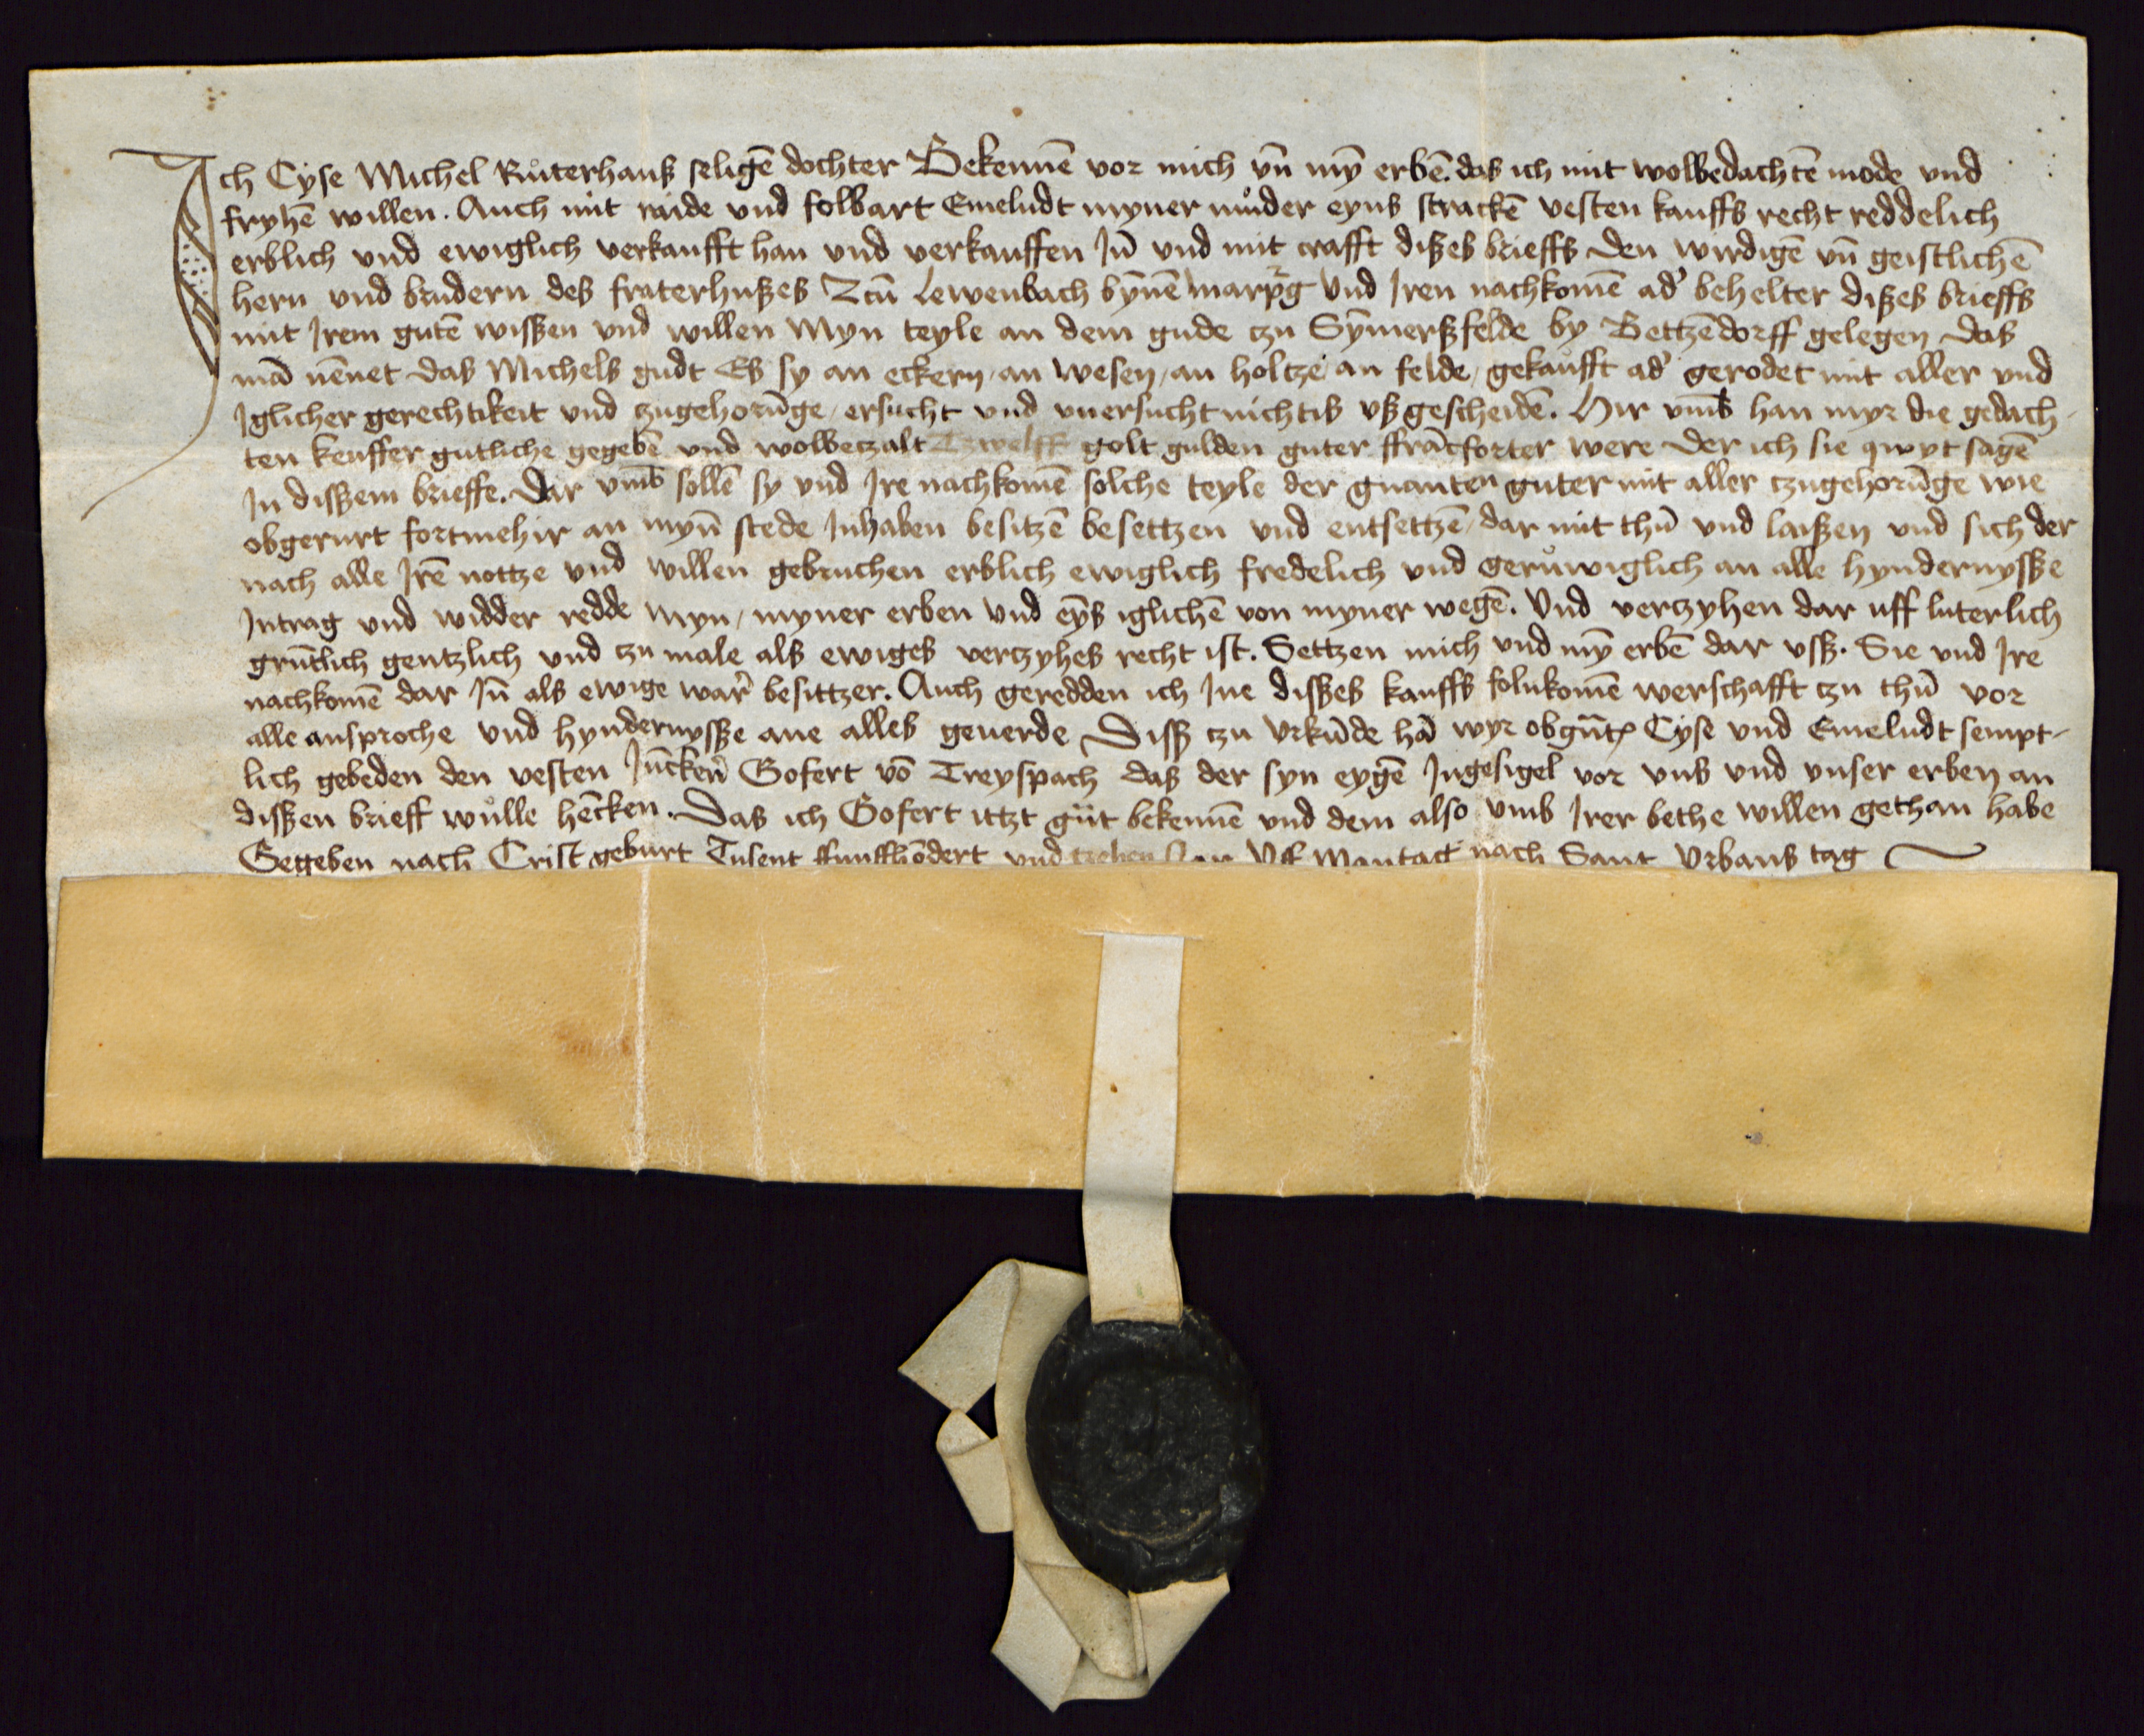 Ich Cyse Michel Ruterhans seligē dochter Bekennē vor mich vn̄ myn̄ erbē. das ich mit wolbedachtē mode vnd
fryhē willen. Auch mit raide vnd folbart Emeludt myner muͦder eyns strackē vesten kauffs recht reddelich
erblich vnd ewiglich verkaufft han vnd verkauffen Jn̄ vnd mit crafft dißes brieffs den wirdigē vn̄ geistlichē
hern vnd brudern des fraterhußes Zcū Lewenbach bȳnē marpg vnd Jren nachkomē ad' behelter dißes brieffs
mit Jrem gutē wißen vnd willen Myn teyle an dem gude czu Sȳmerßfelde by Bettzēdorff gelegen das
mā nēnet das Michels gudt Es sy an eckern / an wesen / an holtze / an felde / gekaufft ad' gerodet mit aller vnd
Jglicher gerechtikeit vnd czugehorūge / ersucht vnd vnersucht nichtis vßgescheidē. Hir vm̄b han myr die gedach-
ten keuffer gutliche gegebē vnd wolbeczalt Tzwelff golt gulden guter ffrācforter were der ich sie qwyt sagē
Jn dißzem brieffe. Dar vm̄b sollē sy vnd Jre nachkomē solche teyle der gnanten guter mit aller czugehorūge wie
obgerurt fortmehir an myn̄ stede Jnhaben besitzē besettzen vnd entsettzē / dar mit thū vnd laißen vnd sich der
nach alle Jrē nottze vnd willen gebruchen erblich ewiglich fredelich vnd geruͦwiglich an alle hyndernysße
Jntrag vnd widder redde myn / myner erben vnd eȳs iglichē von myner wegē. Vnd verczyhen dar uff luterlich
grūtlich gentzlich vnd czu male als ewiges verczyhes recht ist. Settzen mich vnd mȳ erbē dar vsß. Sie vnd Jre
nachkomē dar Jn̄ als ewige war' besittzer. Auch geredden ich Jne dißes kauffs folnkomē werschafft czu thū vor
alle ansproche vnd hyndernysße ane alles geuerde Disß czu vrkūde hā wyr obgn̄t Cyse vnd Emeludt sempt-
lich gebeden den vesten Jūckern̄ Gofert vō Treyspach das der syn eygē Jngesigel vor vns vnd vnser erben an
dißen brieff wuͦlle hēcken. Das ich Gofert itzt gn̄t bekennē vnd dem also vmb Jrer bethe willen gethan habe
Gegeben nach Crist geburt Tusent funffhōdert vnd tzehen Jar Vff Mantag nach Sant Vrbans tag